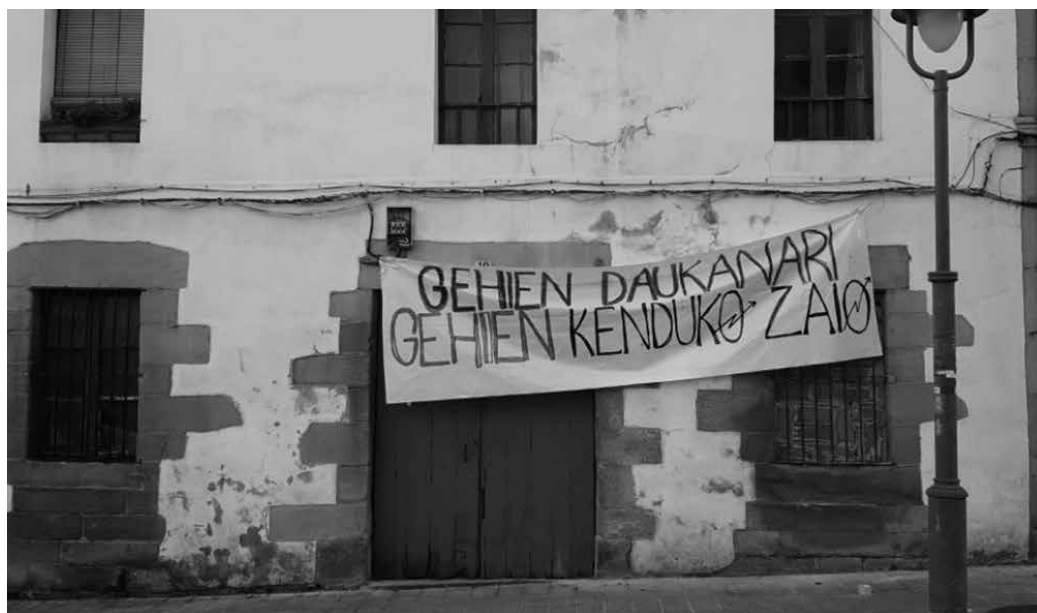 GEHIEN DAUKANARI
GEHIEN KENDUKO ZAIO